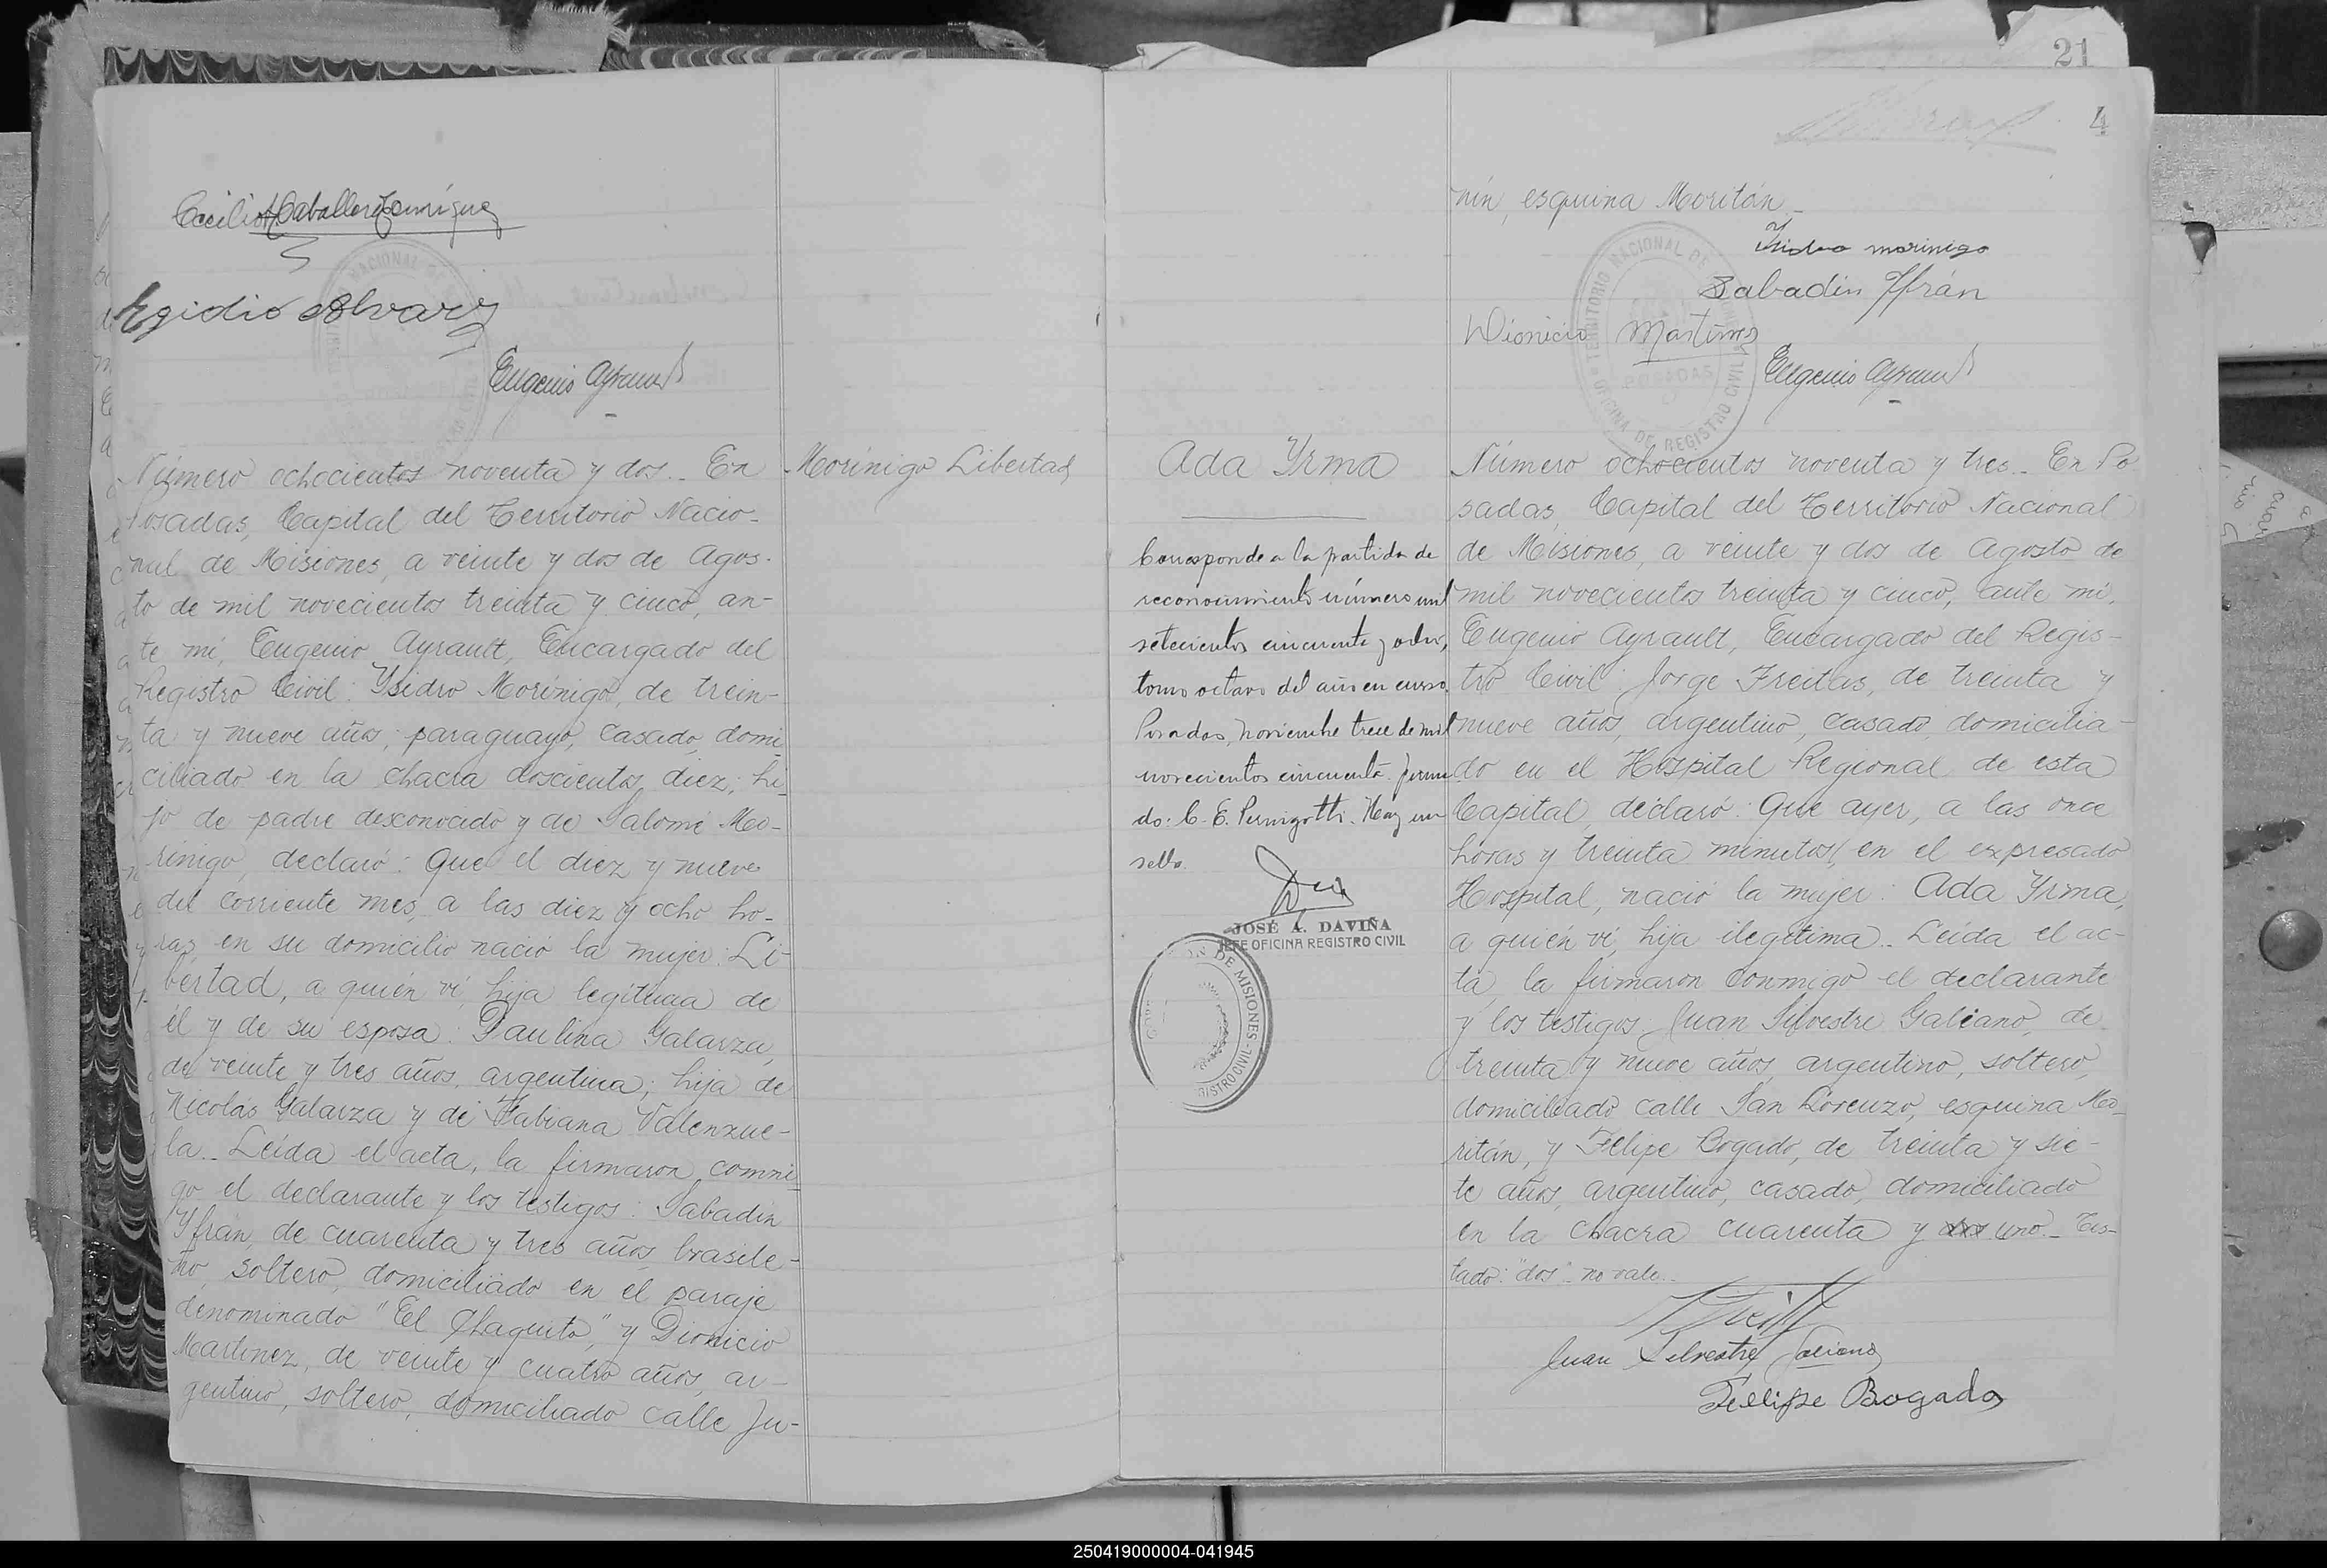 Egidio Alvarez
Eugenio Ayrault
Número ochocientos noventa y dos.. En
Posadas, Capital del Territorio Nacio-
nal de Misiones, a veinte y dos de Agos-
to de mil novecientos treinta y cinco, an-
te mí, Eugenio Ayrault, Encargado del
Registro Civil: Ysidro Morínigo, de trein-
ta y nueve años, paraguayo, casado, domi-
ciliado en la chacra doscientos diez; hi-
jo de padre desconocido y de Salomé Mo-
rínigo, declaró: Que el diez y nueve
del corriente mes, a las diez y ocho ho-
ras, en su domicilio nació la mujer: Li-
bertad, a quién ví, hija legítima de
él y de su esposa: Paulina Galarza,
de veinte y tres años, argentina; hija de
Nicolás Galarza y de Fabiana Valenzue-
la.. Leída el acta, la firmaron conmi-
go el declarante y los testigos: Sabadín
Yfrán, de cuarenta y tres años, brasile-
ño, soltero, domiciliado en el paraje
denominado "El Chaquito," y Dionicio
Martínez, de veinte y cuatro años, ar-
gentino, soltero, domiciliado calle Ju-
Morínigo Libertad
21
4
nín, esquina Moritán
Ysidro morinigo
Sabadin Yfrán
Dionicio Martines
Eugenio Ayrault
TERRITORIO NACIONAL DE
POSADAS
OFICINA DE REGISTRO CIVIL
Ada Yrma
Corresponde a la partida de
reconocimiento número mil
setecientos cincuenta y ocho,
tomo octavo del año en curso.
Posadas, noviembre trece de mil
novecientos cincuenta. firma-
do: C. E. Pernigotti. Hay un
sello.
JOSÉ A. DAVIÑA
JEFE OFICINA REGISTRO CIVIL
DE MISIONES
Número ochocientos noventa y tres.. En Po
sadas, Capital del Territorio Nacional
de Misiones, a veinte y dos de Agosto de
mil novecientos treinta y cinco, ante mí,
Eugenio Ayrault, Encargado del Regis-
tro Civil: Jorge Freitas, de treinta y
nueve años, argentino, casado, domicilia-
do en el Hospital Regional de esta
Capital, declaró: Que ayer, a las once
horas y treinta minutos, en el expresado
Hospital, nació la mujer: Ada Yrma,
a quién ví, hija ilegítima.. Leída el ac-
ta, la firmaron conmigo el declarante
y los testigos: Juan Silvestre Galeano, de
treinta y nueve años, argentino, soltero,
domiciliado calle San Lorenzo, esquina Mo-
ritán, y Felipe Bogado, de treinta y sie-
te años, argentino, casado, domiciliado
en la chacra cuarenta y dos uno.. Tes-
tado: "dos".. no vale..
Juan Silvestre Galeano
Fellipe Bogado
250419000004-041945